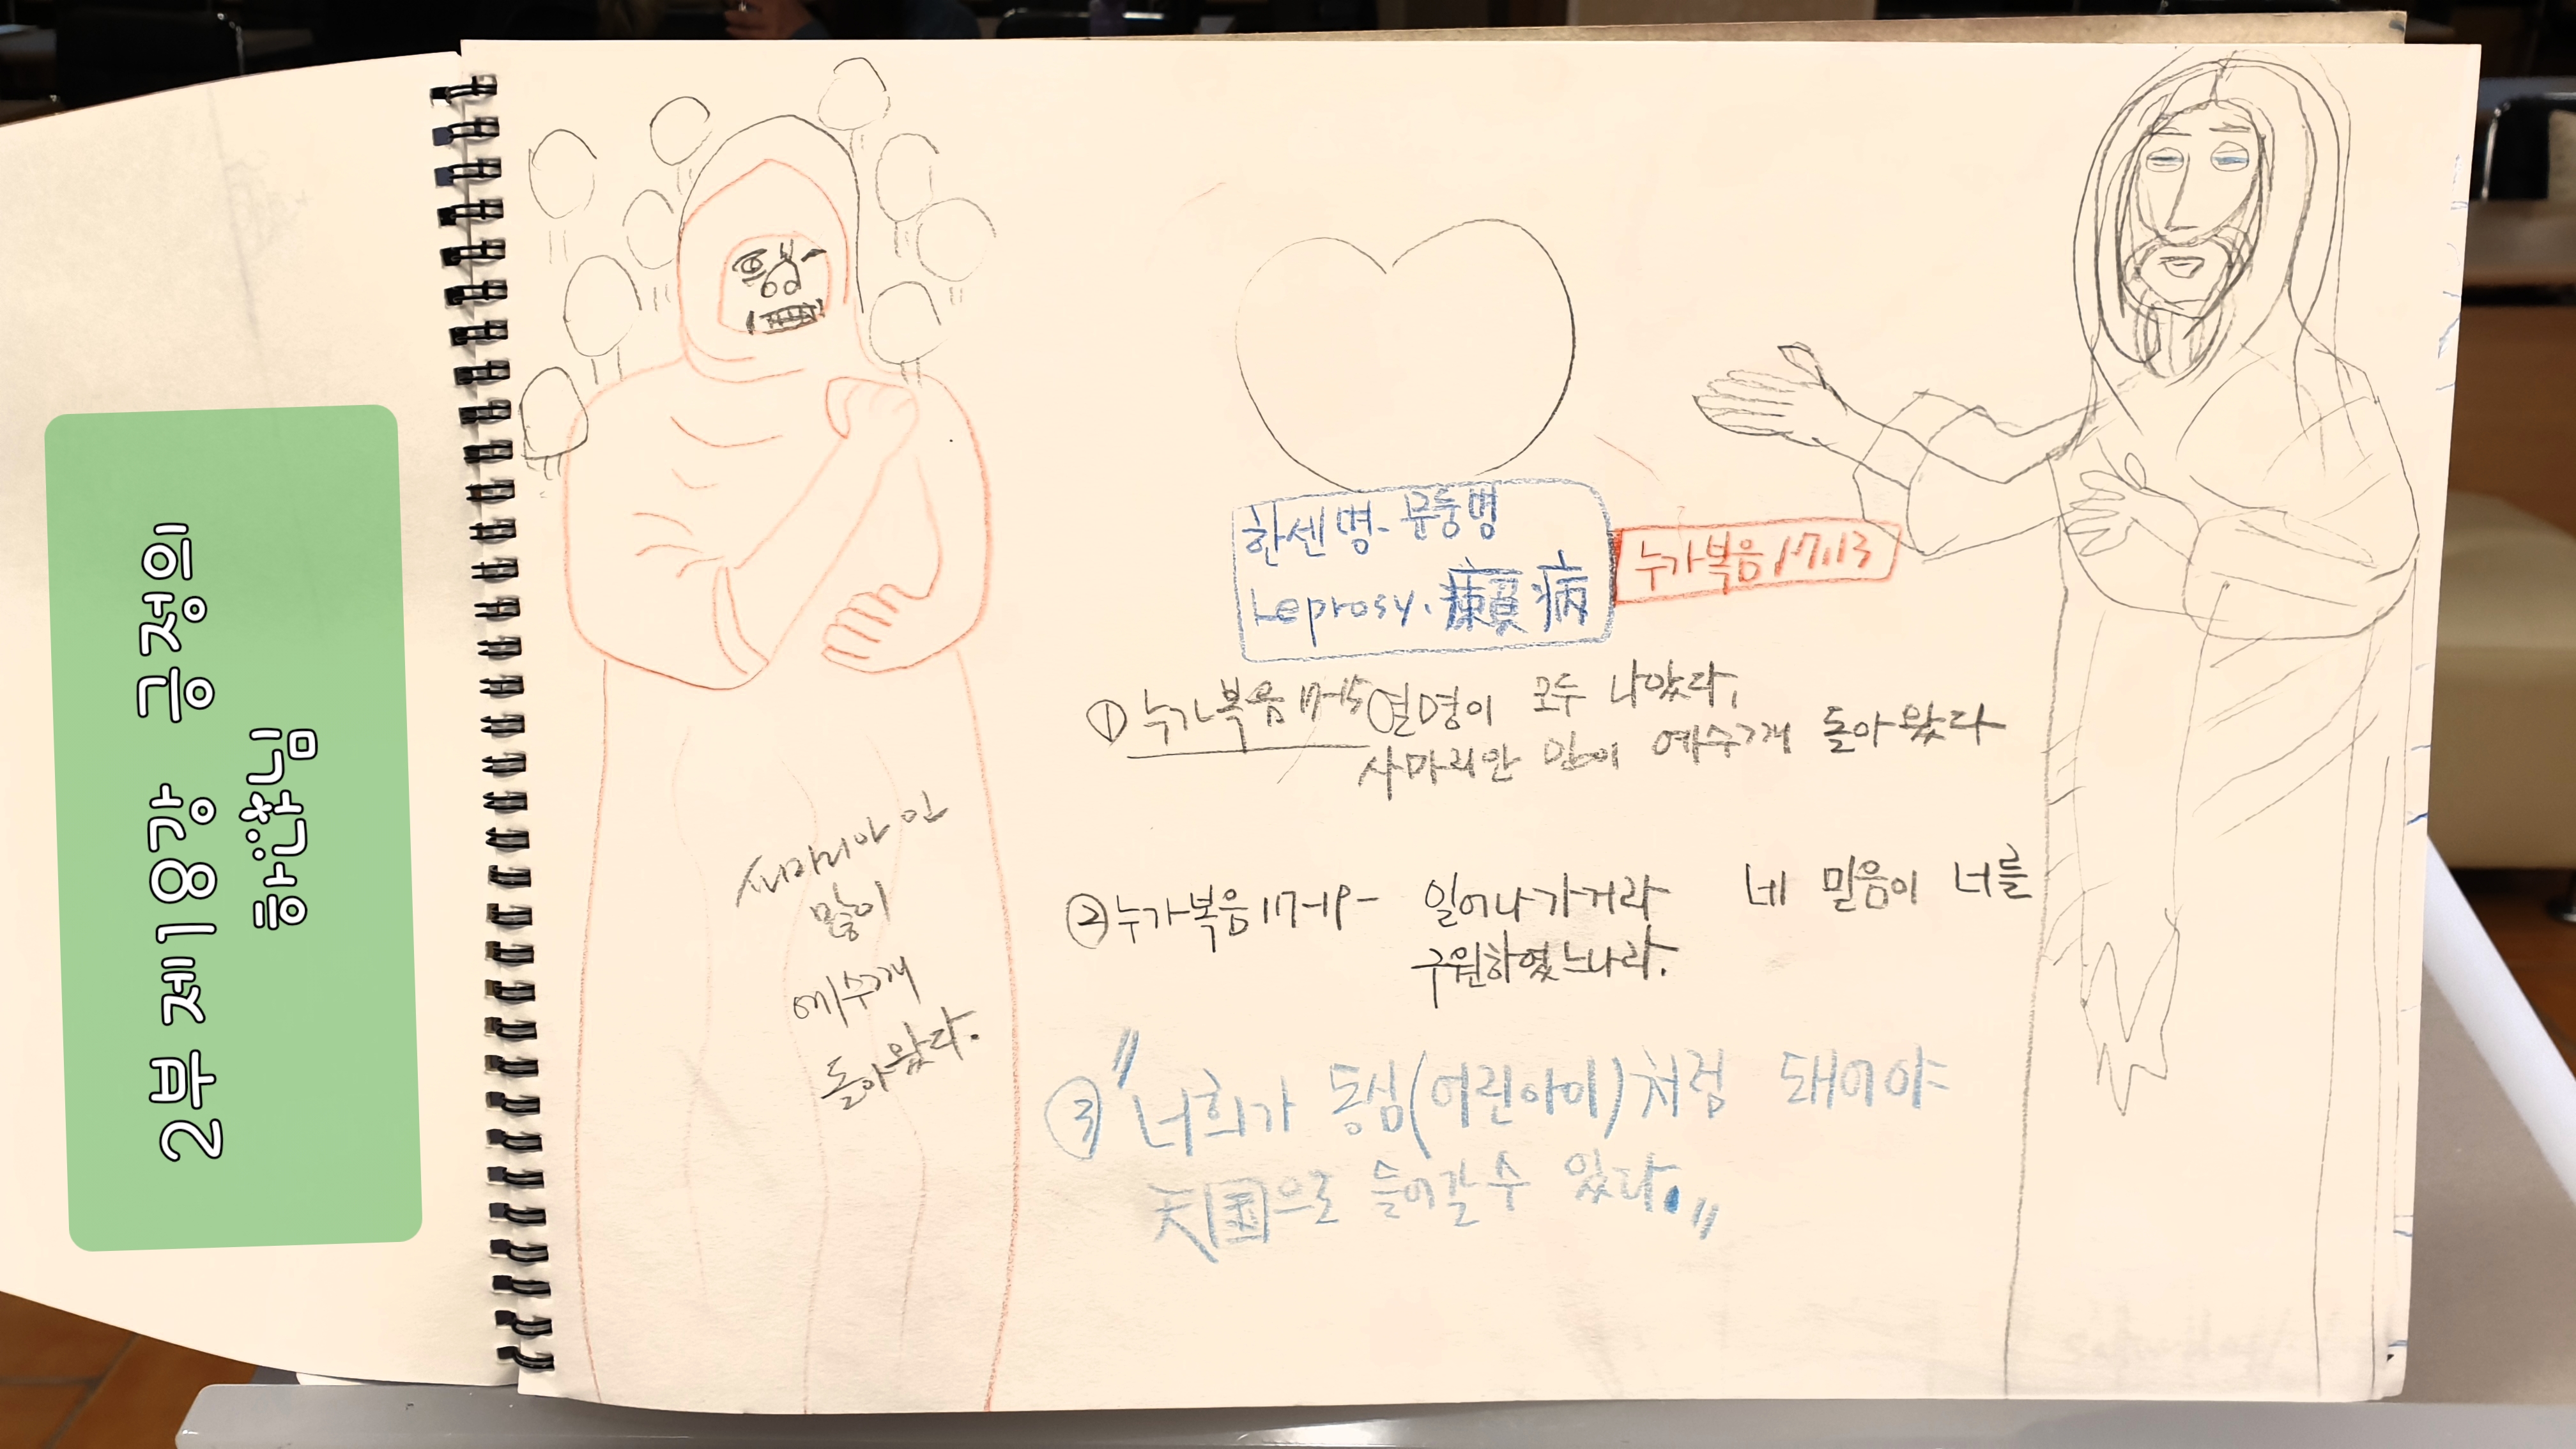 2부 제18강 긍정의
하나님
한센병- 문둥병
Leprosy. 癩病
누가복음17:13
① 누가복음 17-15 열명이 모두 나았다,
사마리안 만이 예수게 돌아왔다
사마리아 안
많이
예수게
돌아왔다.
② 누가복음 17-19- 일어나가거라 네 믿음이 너를
구원하였느니라.
③ "너희가 동심(어린아이)처럼 돼어야
天国으로 들어갈수 있다."